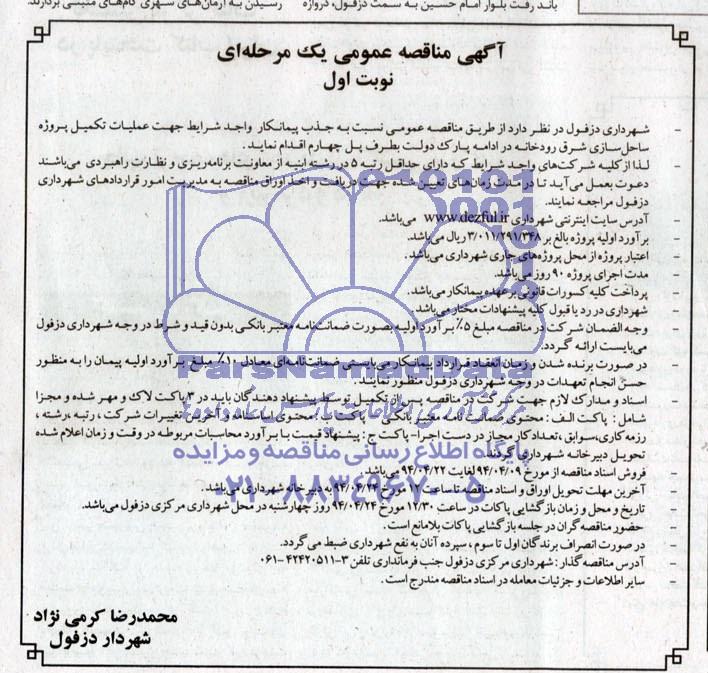 باند رفت بلوار امام حسین به سمت دزفول، دروازه
رسیدن به آرمان‌های شهری گام‌های مثبتی بردارند.
آگهی مناقصه عمومی یک مرحله‌ای
نوبت اول
- شهرداری دزفول در نظر دارد از طریق مناقصه عمومی نسبت به جذب پیمانکار واجد شرایط جهت عملیات تکمیل پروژه
ساحل‌سازی شرق رودخانه در ادامه پارک دولت بطرف پل چهارم اقدام نماید.
- لذا از کلیه شرکت‌های واجد شرایط که دارای حداقل رتبه ۵ در رشته ابنیه از معاونت برنامه‌ریزی و نظارت راهبردی می‌باشند
دعوت بعمل می‌آید تا در مدت زمان‌های تعیین شده جهت دریافت و اخذ اوراق مناقصه به مدیریت امور قراردادهای شهرداری
دزفول مراجعه نمایند.
- آدرس سایت اینترنتی شهرداری www.dezful.ir می‌باشد.
- برآورد اولیه پروژه بالغ بر ۳/۰۱۱/۲۹۱/۳۴۸ ریال می‌باشد.
- اعتبار پروژه از محل پروژه‌های جاری شهرداری می‌باشد.
- مدت اجرای پروژه ۹۰ روز می‌باشد.
- پرداخت کلیه کسورات قانونی بر عهده پیمانکار می‌باشد.
- شهرداری در رد یا قبول کلیه پیشنهادات مختار می‌باشد.
- وجه الضمان شرکت در مناقصه مبلغ ۵٪ برآورد اولیه بصورت ضمانت‌نامه معتبر بانکی بدون قید و شرط در وجه شهرداری دزفول
می‌بایست ارائه گردد.
- در صورت برنده شدن و زمان انعقاد قرارداد پیمانکار می‌بایستی ضمانت‌نامه‌ای معادل ۱۰٪ مبلغ برآورد اولیه پیمان را به منظور
حسن انجام تعهدات در وجه شهرداری دزفول منظور نمایند.
- اسناد و مدارک لازم جهت شرکت در مناقصه پس از تکمیل توسط پیشنهاد دهندگان باید در ۳ پاکت لاک و مهر شده و مجزا
شامل: پاکت الف: محتوی ضمانت نامه معتبر بانکی - پاکت ب: محتوی اساسنامه و آخرین تغییرات شرکت، رتبه، رشته،
رزمه کاری، سوابق، تعداد کار مجاز در دست اجرا- پاکت ج: پیشنهاد قیمت با برآورد محاسبات مربوطه در وقت و زمان اعلام شده
تحویل دبیرخانه شهرداری گردند.
- فروش اسناد مناقصه از مورخ ۹۴/۰۴/۰۹ لغایت ۹۴/۰۴/۲۲ می‌باشد.
- آخرین مهلت تحویل اوراق و اسناد مناقصه تا ساعت مورخ ۹۴/۰۴/۲۴ به دبیرخانه شهرداری می‌باشد.
- تاریخ و محل و زمان بازگشایی پاکات در ساعت ۱۲/۳۰ مورخ ۹۴/۰۴/۲۴ روز چهارشنبه در محل شهرداری مرکزی دزفول می‌باشد.
- حضور مناقصه گران در جلسه بازگشایی پاکات بلامانع است.
- در صورت انصراف برندگان اول تا سوم، سپرده آنان به نفع شهرداری ضبط می‌گردد.
- آدرس مناقصه گذار: شهرداری مرکزی دزفول جنب فرمانداری تلفن ۳-۴۲۴۲۰۵۱۱-۰۶۱
- سایر اطلاعات و جزئیات معامله در اسناد مناقصه مندرج است.
محمدرضا کرمی نژاد
شهردار دزفول
ParsNamadData
پایگاه اطلاع رسانی مناقصه و مزایده
۰۲۱-۸۸۳۴۹۶۷۰-۵